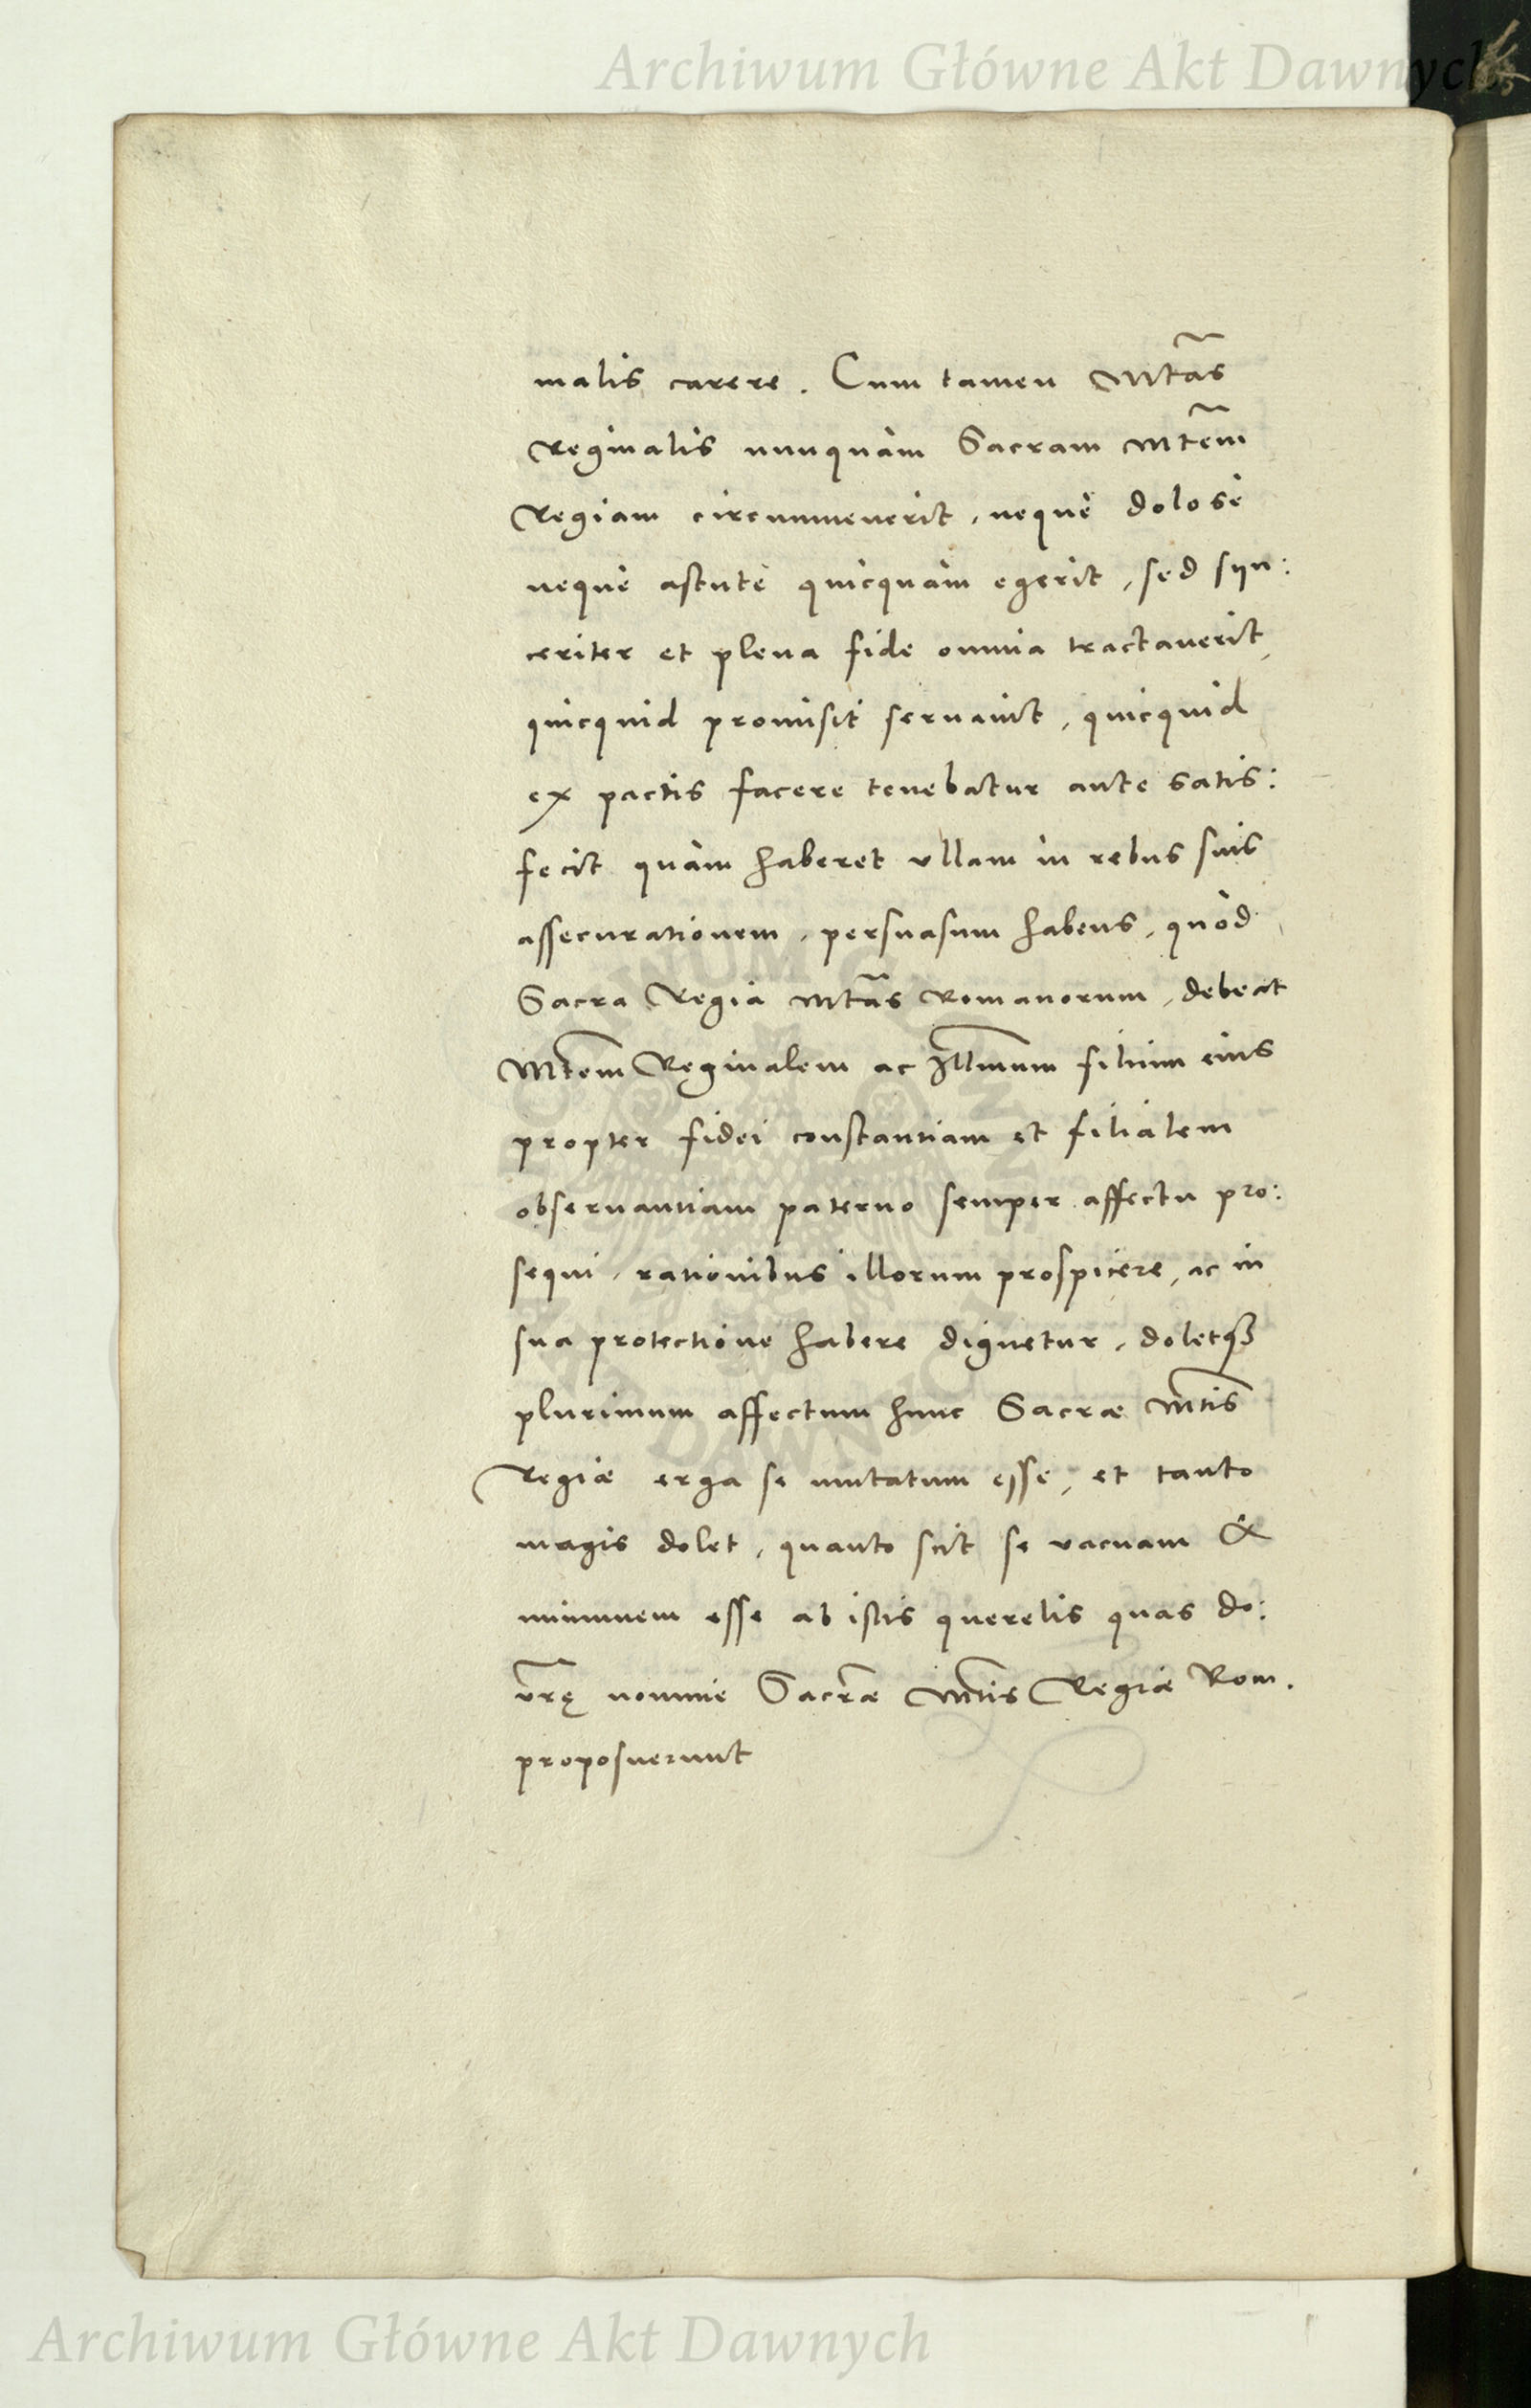 Archiwum Główne Akt Dawnych
malis carere. Cum tamen Mtãs
Reginalis nunquàm Sacram Mtẽm
Regiam circumuenerit, nequè dolosè
nequè astutè quicquàm egerit, sed syn:
ceriter et plena fide omnia tractauerit,
quicquid promisit seruauit, quicquid
ex pactis facere tenebatur ante satis:
fecit quàm haberet vllam in rebus suis
assecurationem, persuasum habens, quòd
Sacra Regia Mtãs Romanorum, debeat
Mtẽm Reginalem ac Illmum filium eius
propter fidei constantiam et filialem
obseruantiam paterno semper affectu pro:
sequi, rationibus illorum prospicere, ac in
sua protectione habere dignetur, doletq3
plurimum affectum hunc Sacræ Mtis
Regiæ erga se mutatum esse, et tanto
magis dolet, quanto scit se vacuam &
immunem esse ab istis querelis quas do:
vrę nomine Sacræ Mtis Regiæ Rom.
proposuerunt
Archiwum Główne Akt Dawnych